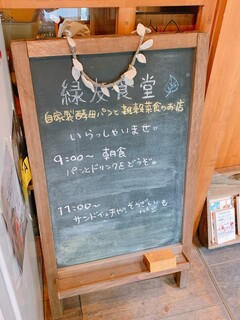 緑友食堂
自家製酵母パンと雑穀菜食のお店
いらっしゃいませ。
9:00〜 朝食
パンとドリンクをどうぞ。
11:00〜
サンドイッチや、